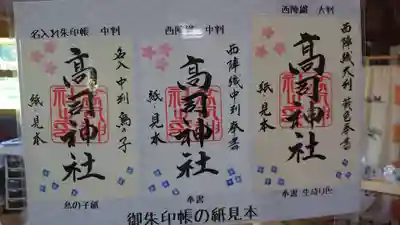 名入れ朱印帳 中判
名入 中判 鳥の子
高司神社
紙見本
鳥の子紙
西陣織 中判
西陣織中判 奉書
高司神社
紙見本
奉書
西陣織 大判
西陣織大判 奉書
高司神社
紙見本
奉書 生成り色
御朱印帳の紙見本